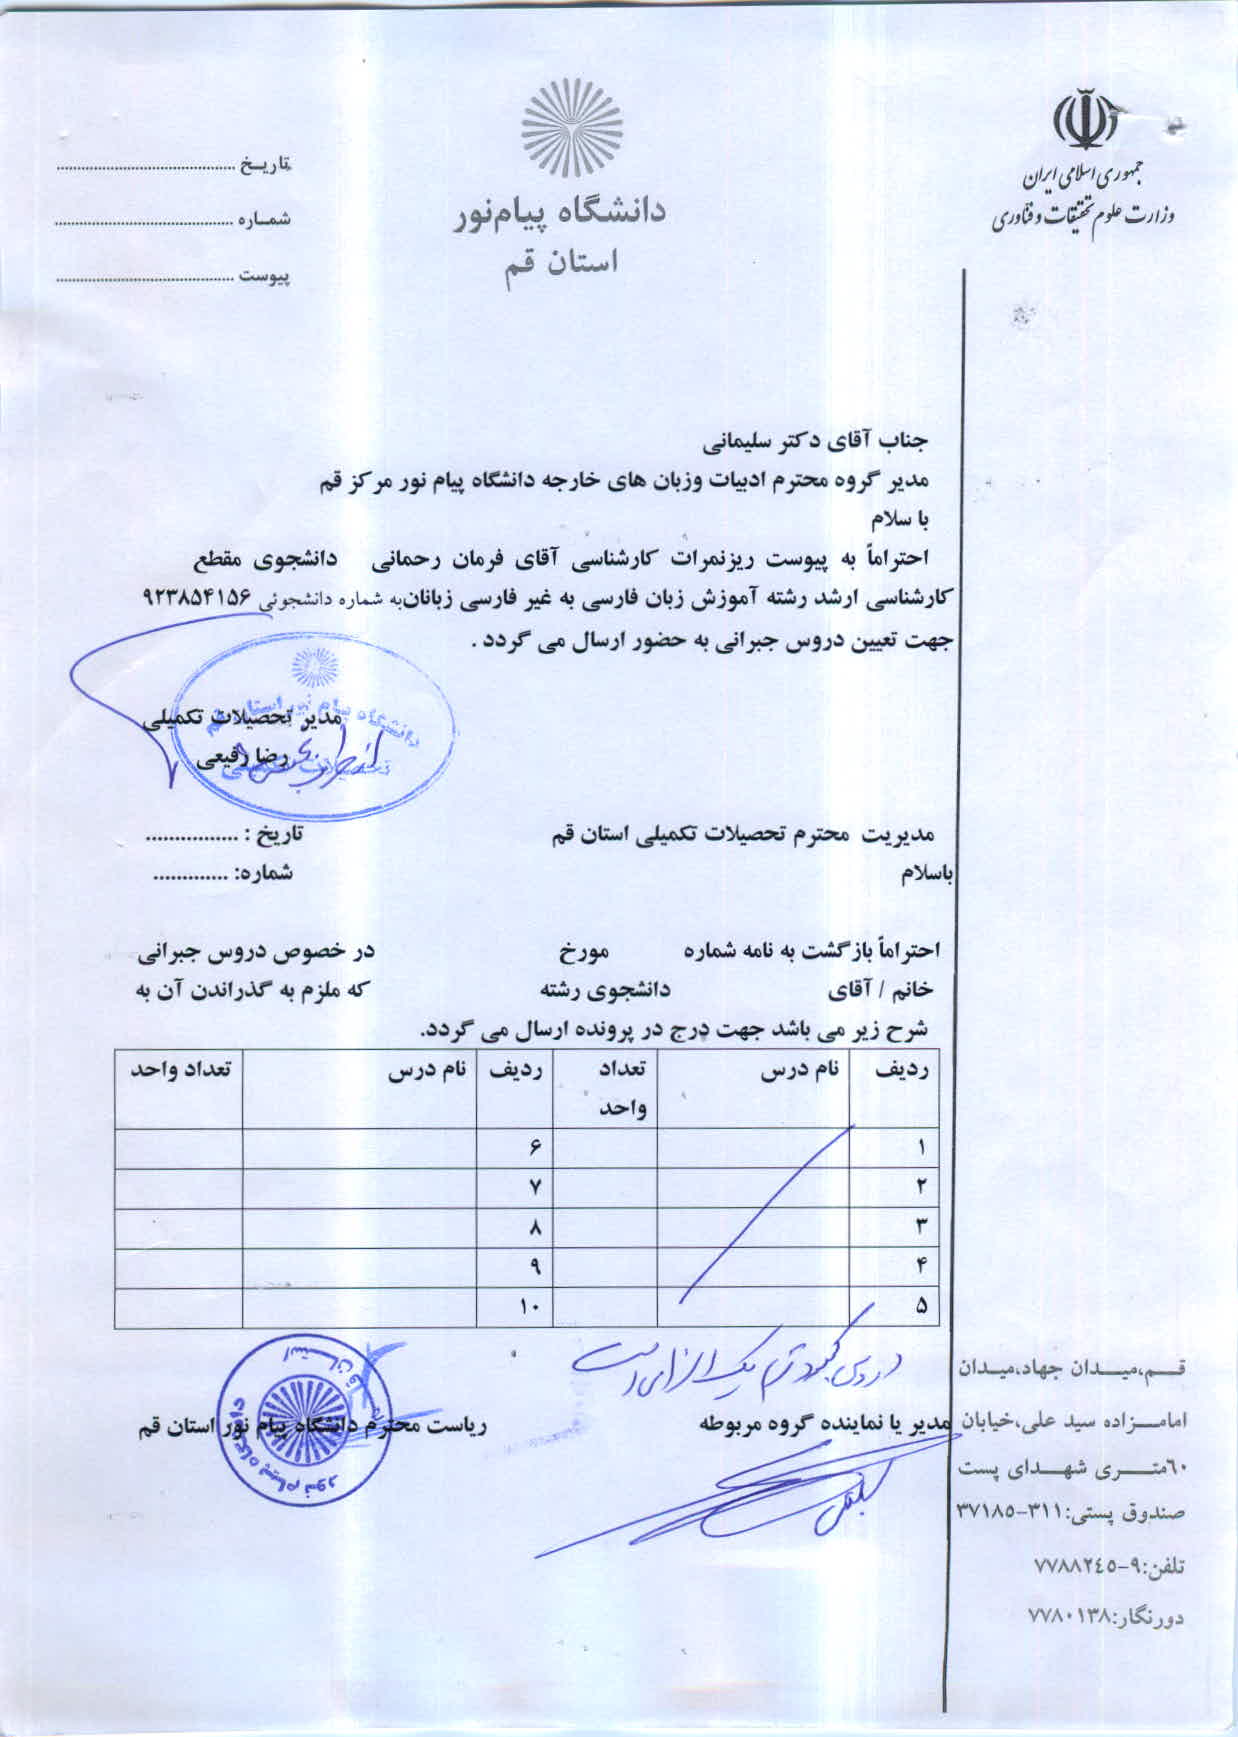 جمهوری اسلامی ایران
وزارت علوم تحقیقات و فناوری
دانشگاه پیام‌نور
استان قم
تاریـخ ..........................................
شمـاره ..........................................
پیوست ..........................................
جناب آقای دکتر سلیمانی
مدیر گروه محترم ادبیات وزبان های خارجه دانشگاه پیام نور مرکز قم
با سلام
احتراماً به پیوست ریزنمرات کارشناسی آقای فرمان رحمانی دانشجوی مقطع
کارشناسی ارشد رشته آموزش زبان فارسی به غیر فارسی زبانان به شماره دانشجوئی ۹۲۳۸۵۴۱۵۶
جهت تعیین دروس جبرانی به حضور ارسال می گردد .
دانشگاه پیام نور استان قم
تحصیلات تکمیلی
مدیر تحصیلات تکمیلی
رضا رفیعی
مدیریت محترم تحصیلات تکمیلی استان قم
تاریخ : ................
باسلام
شماره: .............
احتراماً بازگشت به نامه شماره مورخ در خصوص دروس جبرانی
خانم / آقای دانشجوی رشته که ملزم به گذراندن آن به
شرح زیر می باشد جهت درج در پرونده ارسال می گردد.
ردیف نام درس تعداد واحد ردیف نام درس تعداد واحد
۱ ۶
۲ ۷
۳ ۸
۴ ۹
۵ ۱۰
مدیر یا نماینده گروه مربوطه
ریاست محترم دانشگاه پیام نور استان قم
دانشگاه پیام نور
استان قم
قــم،میــدان جهاد،میـدان
امامـزاده سید علی،خیابان
٦٠متــری شهــدای پست
صندوق پستی:۳۱۱-۳۷۱۸٥
تلفن:۹-۷۷۸۸۲٤٥
دورنگار:۷۷۸۰۱۳۸